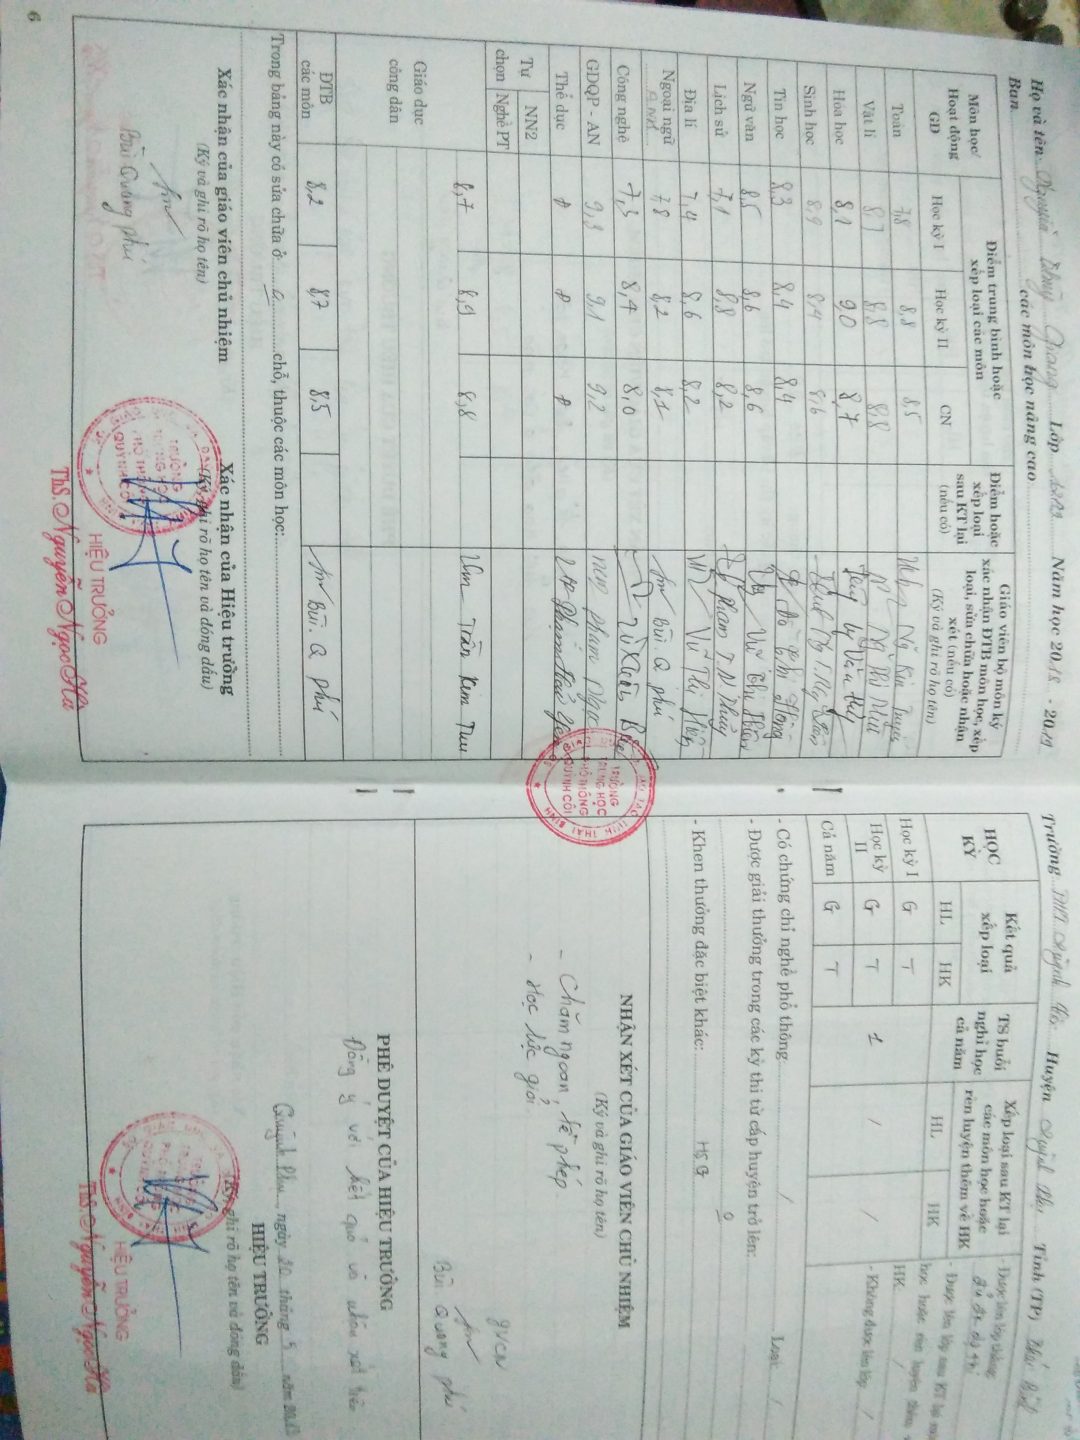 Họ và tên Nguyễn Thuỳ Giang Lớp Năm học 2018 - 2019
Ban các môn học nâng cao
Môn học/ Hoạt động GD
Điểm trung bình hoặc xếp loại các môn
Học kỳ I Học kỳ II CN
Điểm hoặc xếp loại sau KT lại (nếu có)
Giáo viên bộ môn ký xác nhận ĐTB môn học, xếp loại, sửa chữa hoặc nhận xét (nếu có)
(Ký và ghi rõ họ tên)
Toán 7,8 8,8 8,5
Vật lí 8,7 8,8 8,8
Hóa học 8,1 9,0 8,7
Sinh học 8,9 8,4 8,6
Tin học 8,3 8,4 8,4
Ngữ văn 8,5 8,6 8,6 Vũ Thị
Lịch sử 7,1 8,8 8,2 Phạm T. N Thủy
Địa lí 7,4 8,6 8,2 Vũ Thị
Ngoại ngữ ANH 7,8 8,2 8,1 Bùi. Q phú
Công nghệ 7,3 8,4 8,0
GDQP - AN 9,3 9,1 9,2 phạm Ngọc
Thể dục Đ Đ Đ Phạm Hải Yến
Tự chọn NN2
Nghề PT
8,7 8,9 8,8 Trần Kim Thu
Giáo dục công dân
ĐTB các môn 8,2 8,7 8,5 Bùi. Q phú
Trong bảng này có sửa chữa ở 0 chỗ, thuộc các môn học:
Xác nhận của giáo viên chủ nhiệm
(Ký và ghi rõ họ tên)
Bùi Quang phú
Xác nhận của Hiệu trưởng
(Ký, ghi rõ họ tên và đóng dấu)
HIỆU TRƯỞNG
ThS. Nguyễn Ngọc Hà
6
TRƯỜNG
TRUNG HỌC
PHỔ THÔNG
QUỲNH CÔI
Trường THPT Quỳnh Côi Huyện Quỳnh Phụ Tỉnh (TP) Thái Bình
HỌC KỲ
Kết quả xếp loại
HL HK
TS buổi nghỉ học cả năm
Xếp loại sau KT lại các môn học hoặc rèn luyện thêm về HK
HL HK
- Được lên lớp thẳng:
- Được lên lớp sau KT lại
học hoặc rèn luyện thêm
HK /
- Không được lên lớp /
Học kỳ I G T
Học kỳ II G T 1 / /
Cả năm G T
- Có chứng chỉ nghề phổ thông / Loại: /
- Được giải thưởng trong các kỳ thi từ cấp huyện trở lên: 0
- Khen thưởng đặc biệt khác: HSG
NHẬN XÉT CỦA GIÁO VIÊN CHỦ NHIỆM
(Ký và ghi rõ họ tên)
- Chăm ngoan, lễ phép
- Học lực giỏi
GVCN
Bùi Quang phú
PHÊ DUYỆT CỦA HIỆU TRƯỞNG
Đồng ý với kết quả và nhận xét trên
Quỳnh Phụ, ngày 20 tháng 5 năm
HIỆU TRƯỞNG
(Ký, ghi rõ họ tên và đóng dấu)
HIỆU TRƯỞNG
ThS. Nguyễn Ngọc Hà